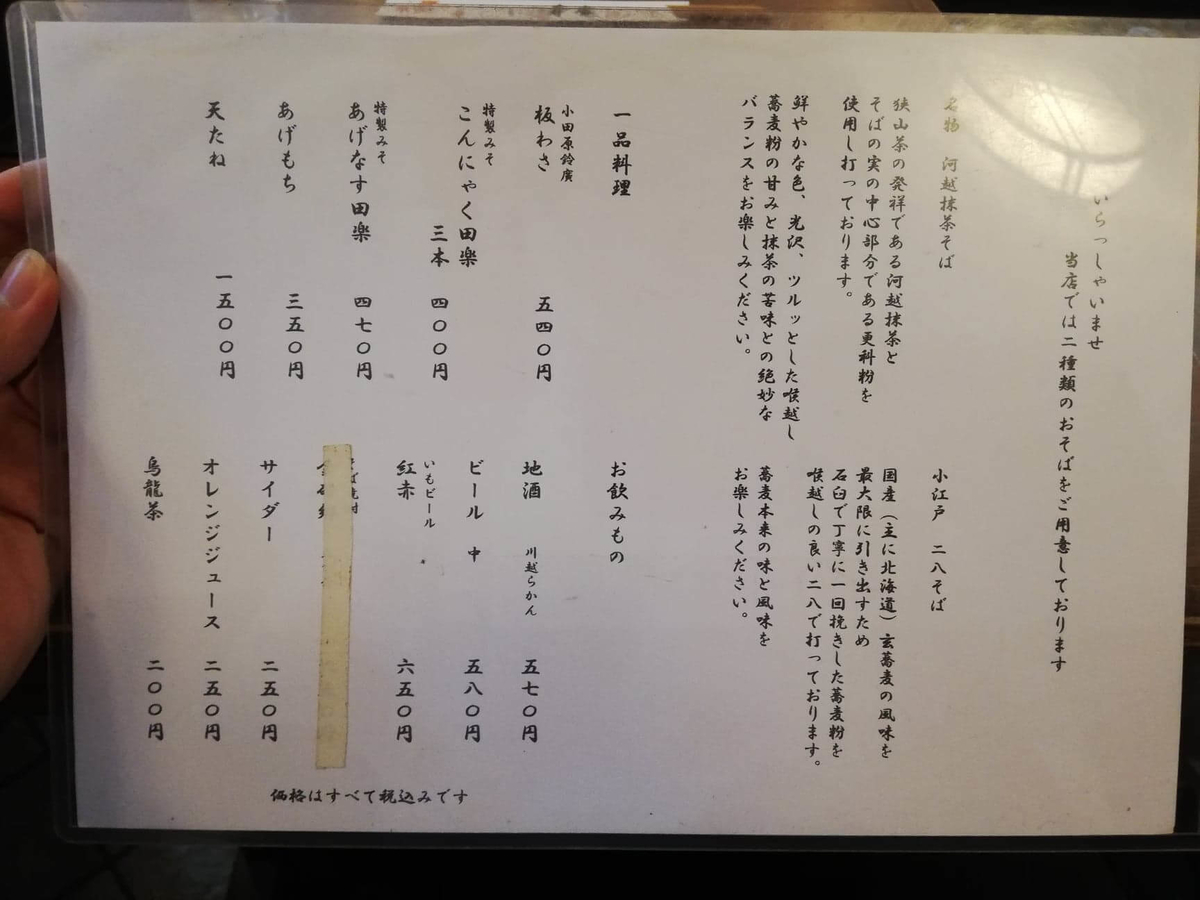 いらっしゃいませ
当店では二種類のおそばをご用意しております
名物 河越抹茶そば
狭山茶の発祥である河越抹茶と
そばの実の中心部分である更科粉を
使用し打っております。
鮮やかな色、光沢、ツルッとした喉越し
蕎麦粉の甘みと抹茶の苦味との絶妙な
バランスをお楽しみください。
小江戸 二八そば
国産(主に北海道)玄蕎麦の風味を
最大限に引き出すため
石臼で丁寧に一回挽きした蕎麦粉を
喉越しの良い二八で打っております。
蕎麦本来の味と風味を
お楽しみください。
一品料理
小田原鈴廣
板わさ 五四〇円
特製みそ
こんにゃく田楽
三本 四〇〇円
特製みそ
あげなす田楽 四七〇円
あげもち 三五〇円
天たね 一五〇〇円
お飲みもの
地酒 川越らかん 五七〇円
ビール 中 五八〇円
いもビール
紅赤 六五〇円
サイダー 二五〇円
オレンジジュース 二五〇円
烏龍茶 二〇〇円
価格はすべて税込みです